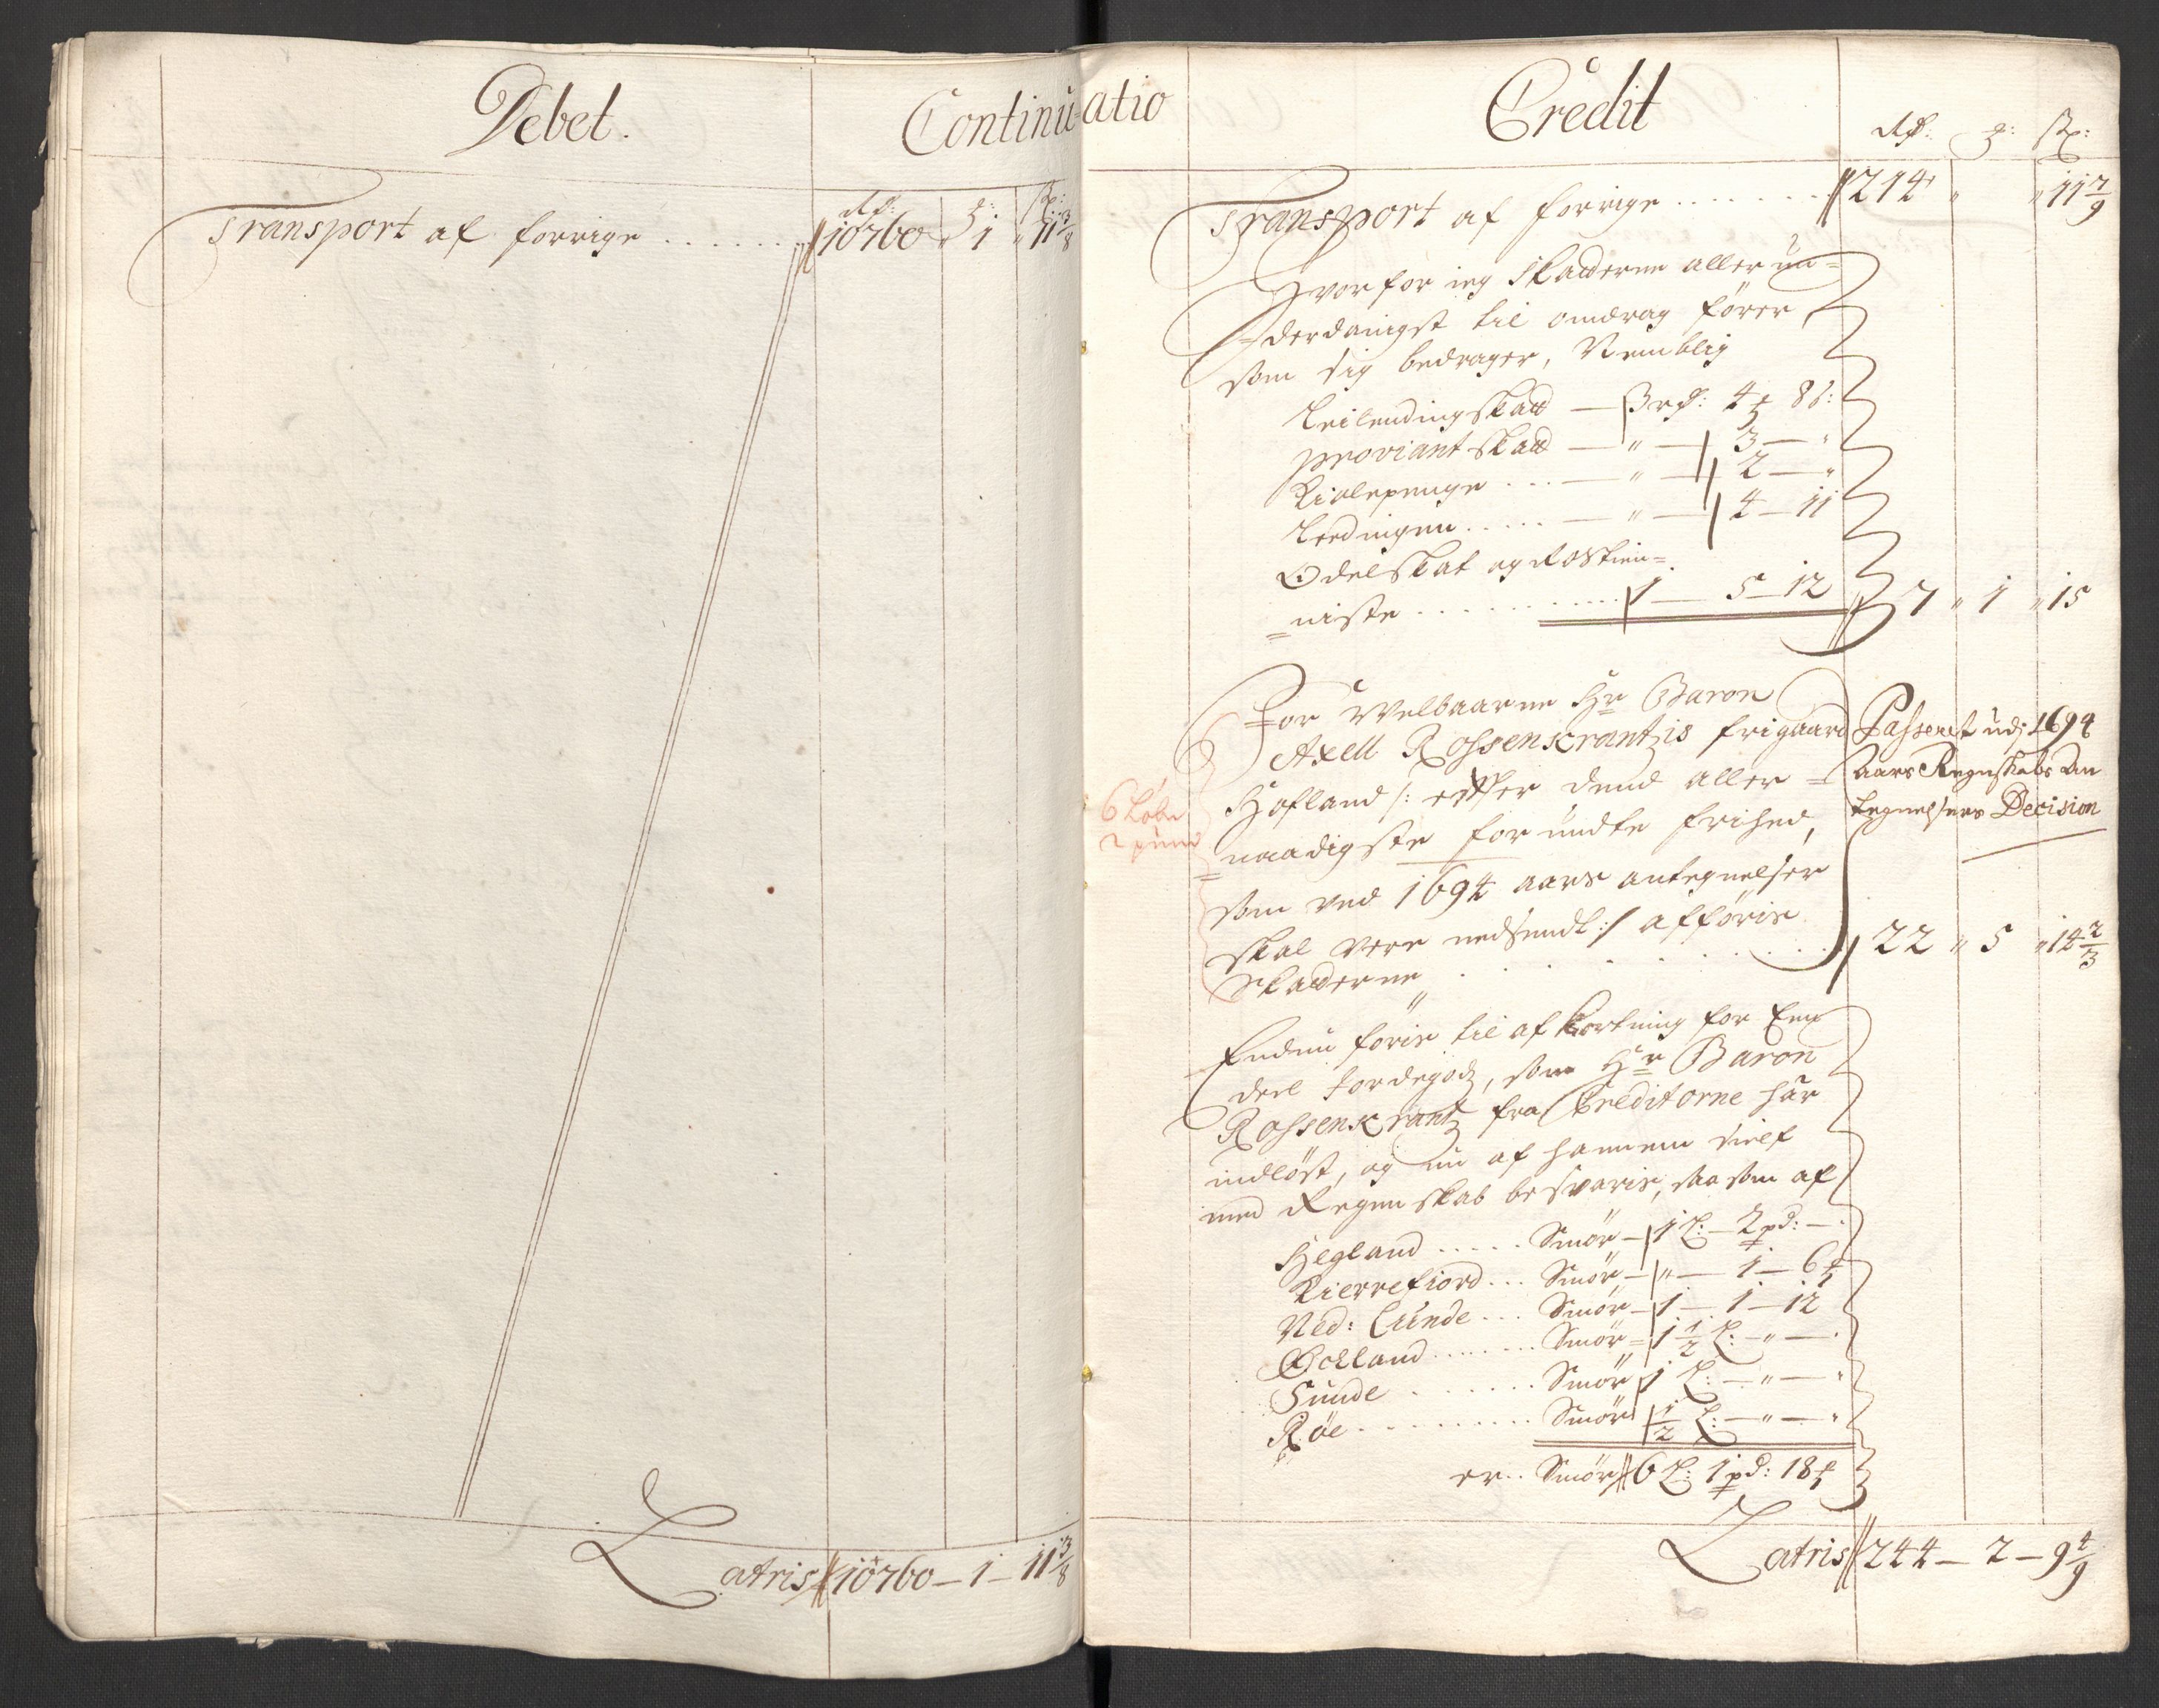 Debet.
Continu-
Rdr: ₰: ß:
Transport af forrige ....... 10760 " 1 " 11 3/8
Latris 10760 – 1 – 11 3/8
atio
Credit
Rdr: ₰: ß:
Transport af forrige ....... 214 " " 11 7/9
Hvorfor ieg Skatterne aller un-
derdanigst til omdrag fører
som sig bedrager, Nemblig
Leilendingskatt — 3 rdr: 4 8 ß:
proviantskatt — " — 3 — "
Kiolepenge ... — " — 2 — "
Leedingen ..... — " — 4 – 11
Odelskat og Rostien-
niste ........... 5 – 12 7 " 1 " 15
For Welbaarne Hr Baron
Axell Rossenkrantzis frigaard
Hofland /: efter dend aller-
naadigste forundte frihed,
som ved 1694 aars antegnelser
skal vere nedsendt :/ afføris
Skatterne 22 " 5 " 14 2/3
6 Løbe
2 pund
Passeret udj 1694
aars Regnskabs An
tegnelsers Decision
Endnu føris til afkortning for Een
deel Jordegodz, som Hr Baron
Rossenkrantz fra Creditorne har
indløst, og nu af hannem sielf
med Regenskab besvaris, saa som af
Hegland ..... Smør – 1 L: – 2 pd: – "
Kierrefiord ... Smør – " – 1 – 6
Ned: Lunde ... Smør – 1 – 1 – 12
Golland ........ Smør – 1 1/2 L: – " – "
Sunde ....... Smør 1 L: – " – "
Røe .......... Smør 1/2 L: – " – "
er .. Smør 6 L: 1 pd: 18
Latris 244 – 2 – 9 4/9